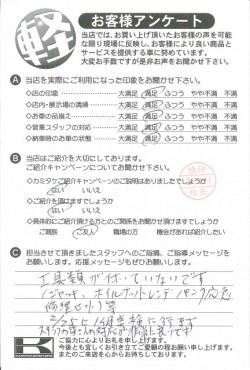 軽
お客様アンケート
当店では、お買い上げ頂いたお客様の声を可能
な限り現場に反映し、お客様により良い商品と
サービスを提供する事に努めています。
大変お手数ですが是非お声をお聞かせ下さい。
A 当店を実際にご利用になった印象をお聞かせ下さい。
◇店の印象 大満足 満足 ふつう やや不満 不満
◇店内・展示場の清掃 大満足 満足 ふつう やや不満 不満
◇お車の品揃え 大満足 満足 ふつう やや不満 不満
◇営業スタッフの対応 大満足 満足 ふつう やや不満 不満
◇納車時のお車の状態 大満足 満足 ふつう やや不満 不満
B 当店はご紹介を大切にしております。
ご紹介キャンペーンについてお聞かせ下さい。
◇カミタケご紹介キャンペーンのご説明はありましたでしょうか
はい いいえ
◇ご紹介を頂けますでしょうか
はい いいえ
◇具体的にご紹介頂ける方とのご関係をお聞かせ頂けますでしょうか
ご親族 ご友人 職場の方 機会があれば紹介したい
C 担当させて頂きましたスタッフへのご指摘、ご指導メッセージを
お願いします。応援メッセージもぜひお願いします。
工具類が付いていないです
スタッフの皆さんの対応が非常に良かったです
ご協力に心よりお礼を申し上げます。
今後とも宜しくお引き立てご愛顧の程お願い申し上げます。
またのご来店を心からお待ちしております。
K